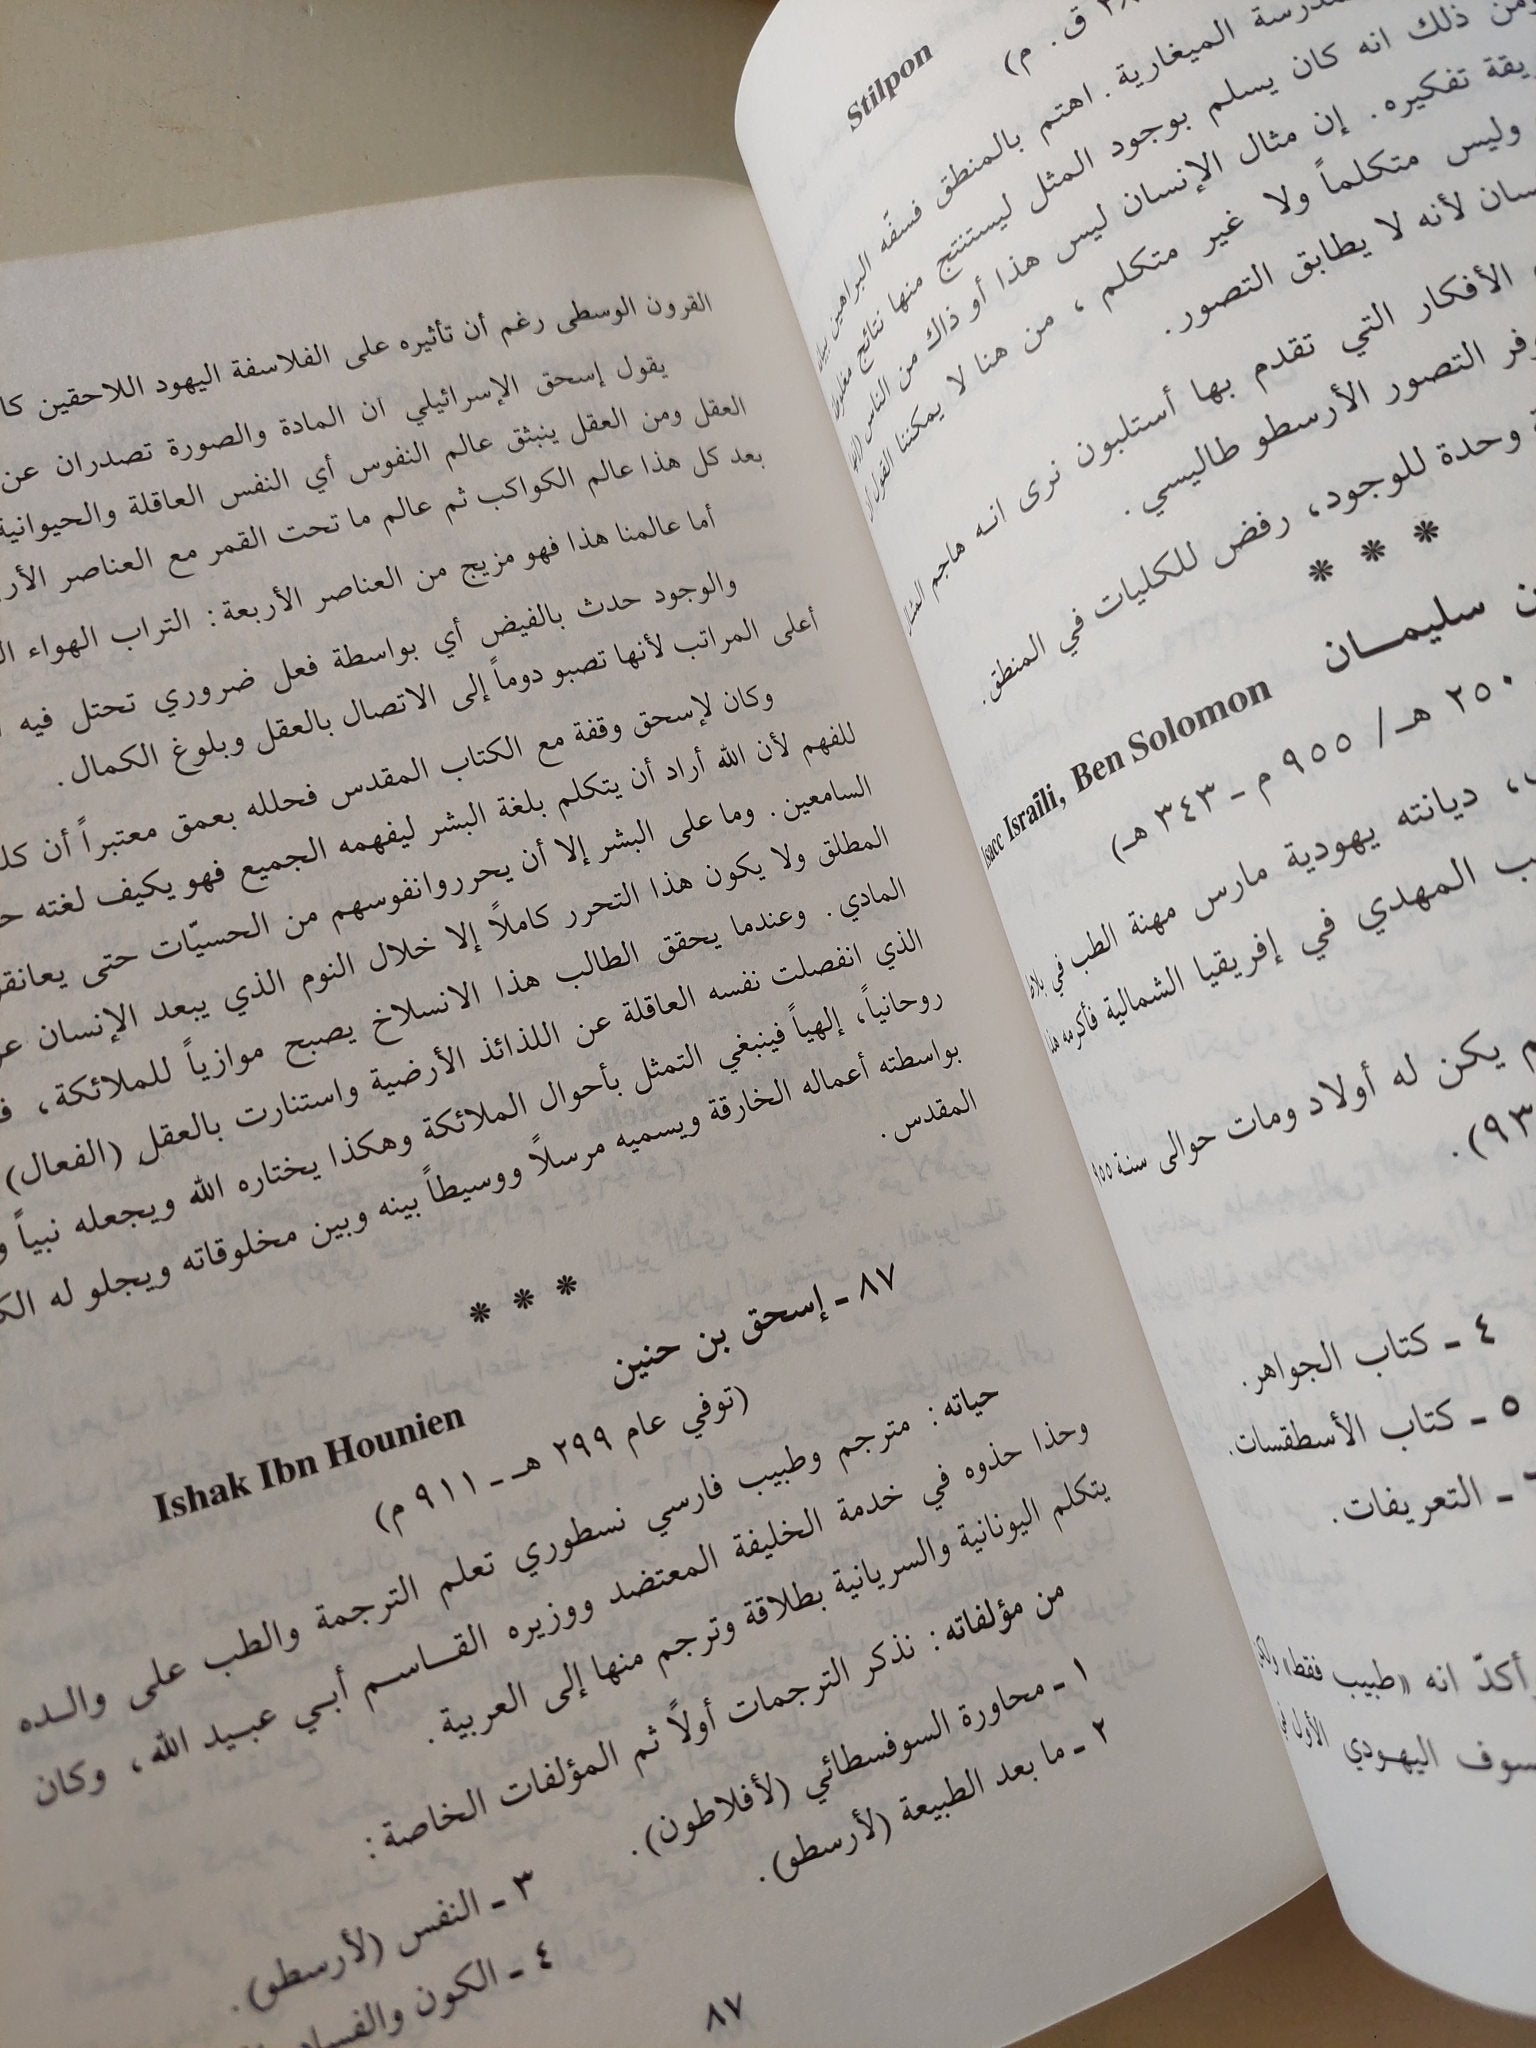 ٣٨ ق. م)
Stilpon
المدرسة الميغارية. اهتم بالمنطق فسفّه البراهين
ومن ذلك انه كان يسلم بوجود المثل ليستنتج منها نتائج
طريقة تفكيره. إن مثال الإنسان ليس هذا أو ذاك من الناس
وليس متكلماً ولا غير متكلم، من هنا لا يمكننا القول
لأنه لا يطابق التصور.
الأفكار التي تقدم بها أستلبون نرى انه هاجم
التصور الأرسطو طاليسي.
وحدة للوجود، رفض للكليات في المنطق.
* * *
سليمان
Isacc Israîli, Ben Solomon
٢٥٠ هـ/ ٩٥٥ م - ٣٤٣ هـ)
ديانته يهودية مارس مهنة الطب في
المهدي في إفريقيا الشمالية فأكرمه هذا
يكن له أولاد ومات حوالى سنة ٩٥٥
٤ - كتاب الجواهر.
٥ - كتاب الأسطقسات.
- التعريفات.
أكدّ انه «طبيب فقط»
اليهودي الأول
القرون الوسطى رغم أن تأثيره على الفلاسفة اليهود اللاحقين
يقول إسحق الإسرائيلي ان المادة والصورة تصدران عن
العقل ومن العقل ينبثق عالم النفوس أي النفس العاقلة والحيوانية
بعد كل هذا عالم الكواكب ثم عالم ما تحت القمر مع العناصر
أما عالمنا هذا فهو مزيج من العناصر الأربعة: التراب الهواء
والوجود حدث بالفيض أي بواسطة فعل ضروري تحتل فيه
أعلى المراتب لأنها تصبو دوماً إلى الاتصال بالعقل وبلوغ الكمال.
وكان لإسحق وقفة مع الكتاب المقدس فحلله بعمق معتبراً أن
للفهم لأن الله أراد أن يتكلم بلغة البشر ليفهمه الجميع فهو يكيف لغته
السامعين. وما على البشر إلا أن يحرروانفوسهم من الحسيّات حتى
المطلق ولا يكون هذا التحرر كاملاً إلا خلال النوم الذي يبعد الإنسان
المادي. وعندما يحقق الطالب هذا الانسلاخ يصبح موازياً للملائكة،
الذي انفصلت نفسه العاقلة عن اللذائذ الأرضية واستنارت بالعقل (الفعال)
روحانياً، إلهياً فينبغي التمثل بأحوال الملائكة وهكذا يختاره الله ويجعله نبياً
بواسطته أعماله الخارقة ويسميه مرسلاً ووسيطاً بينه وبين مخلوقاته ويجلو له
المقدس.
* * *
٨٧ - إسحق بن حنين
Ishak Ibn Hounien
(توفي عام ٢٩٩ هـ - ٩١١ م)
حياته: مترجم وطبيب فارسي نسطوري تعلم الترجمة والطب على والده
وحذا حذوه في خدمة الخليفة المعتضد ووزيره القاسم أبي عبيد الله، وكان
يتكلم اليونانية والسريانية بطلاقة وترجم منها إلى العربية.
من مؤلفاته: نذكر الترجمات أولاً ثم المؤلفات الخاصة:
١ - محاورة السوفسطائي (لأفلاطون).
٢ - ما بعد الطبيعة (لأرسطو).
٣ - النفس (لأرسطو).
٤ - الكون
٨٧